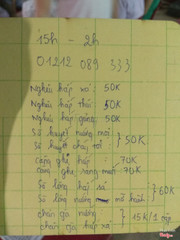 15h - 2h
01212 089 333
Nghêu hấp xả : 50K
Nghêu hấp thái 50K
Nghêu hấp gừng : 50K
Sò huyết nướng mọi
Sò huyết cháy tỏi } 50K
càng ghẹ hấp : 70K
càng ghẹ rang muối 70K
Sò lông hấp sả
Sò lông nướng mỡ hành } 60K
chân gà nướng
chân gà hấp } 15K/1 cặp